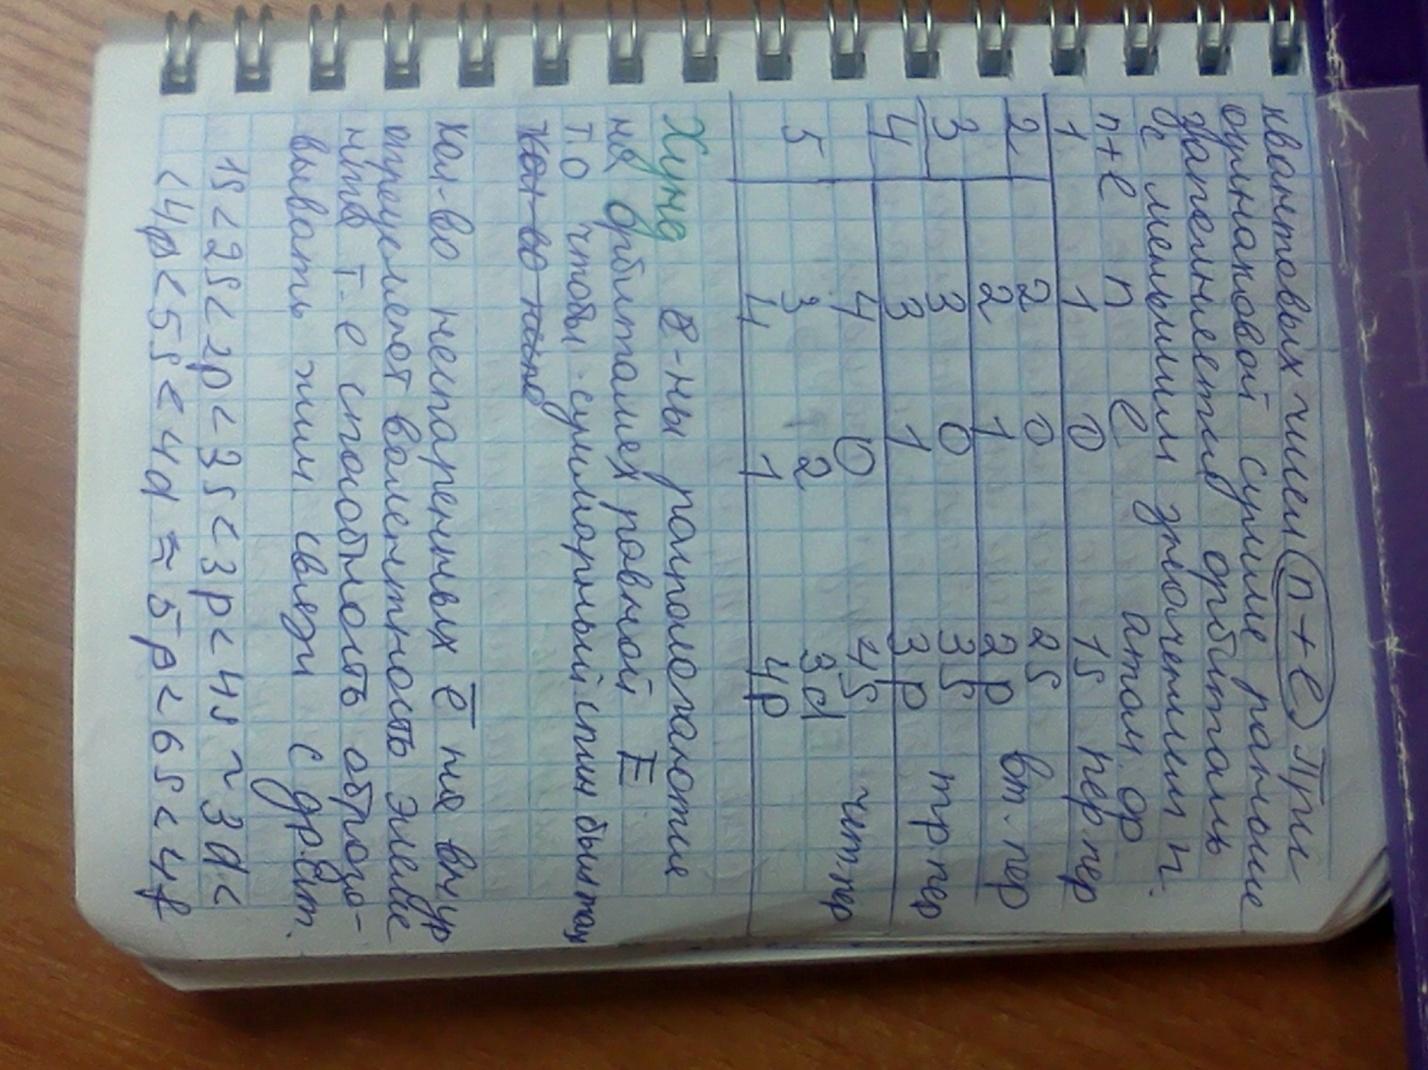 квантовых чисел n+e При
одинаковой сумме раньше
заполняется орбиталь
с меньшим значением n.
n+e n e атом ор
1 1 0 1s пер.пер
2 2 0 2s вт.пер
2 1 2p
3 3 0 3s тр пер
4 3 1 3p
4 0 4s чит пер
5 3 2 3d
4 1 4p
Хунд ē-ны располагаются
на орбиталях равной E
т.о чтобы суммарный спин был max
Кол-во
Кол-во неспаренных ē на вн ур
определяют валентность элеме
нтв т.е способность образо-
вывать хим связи с др.
1s<2s<2p<3s<3p<4s~3d<
<4p<5s<4d≈5p<6s<4f